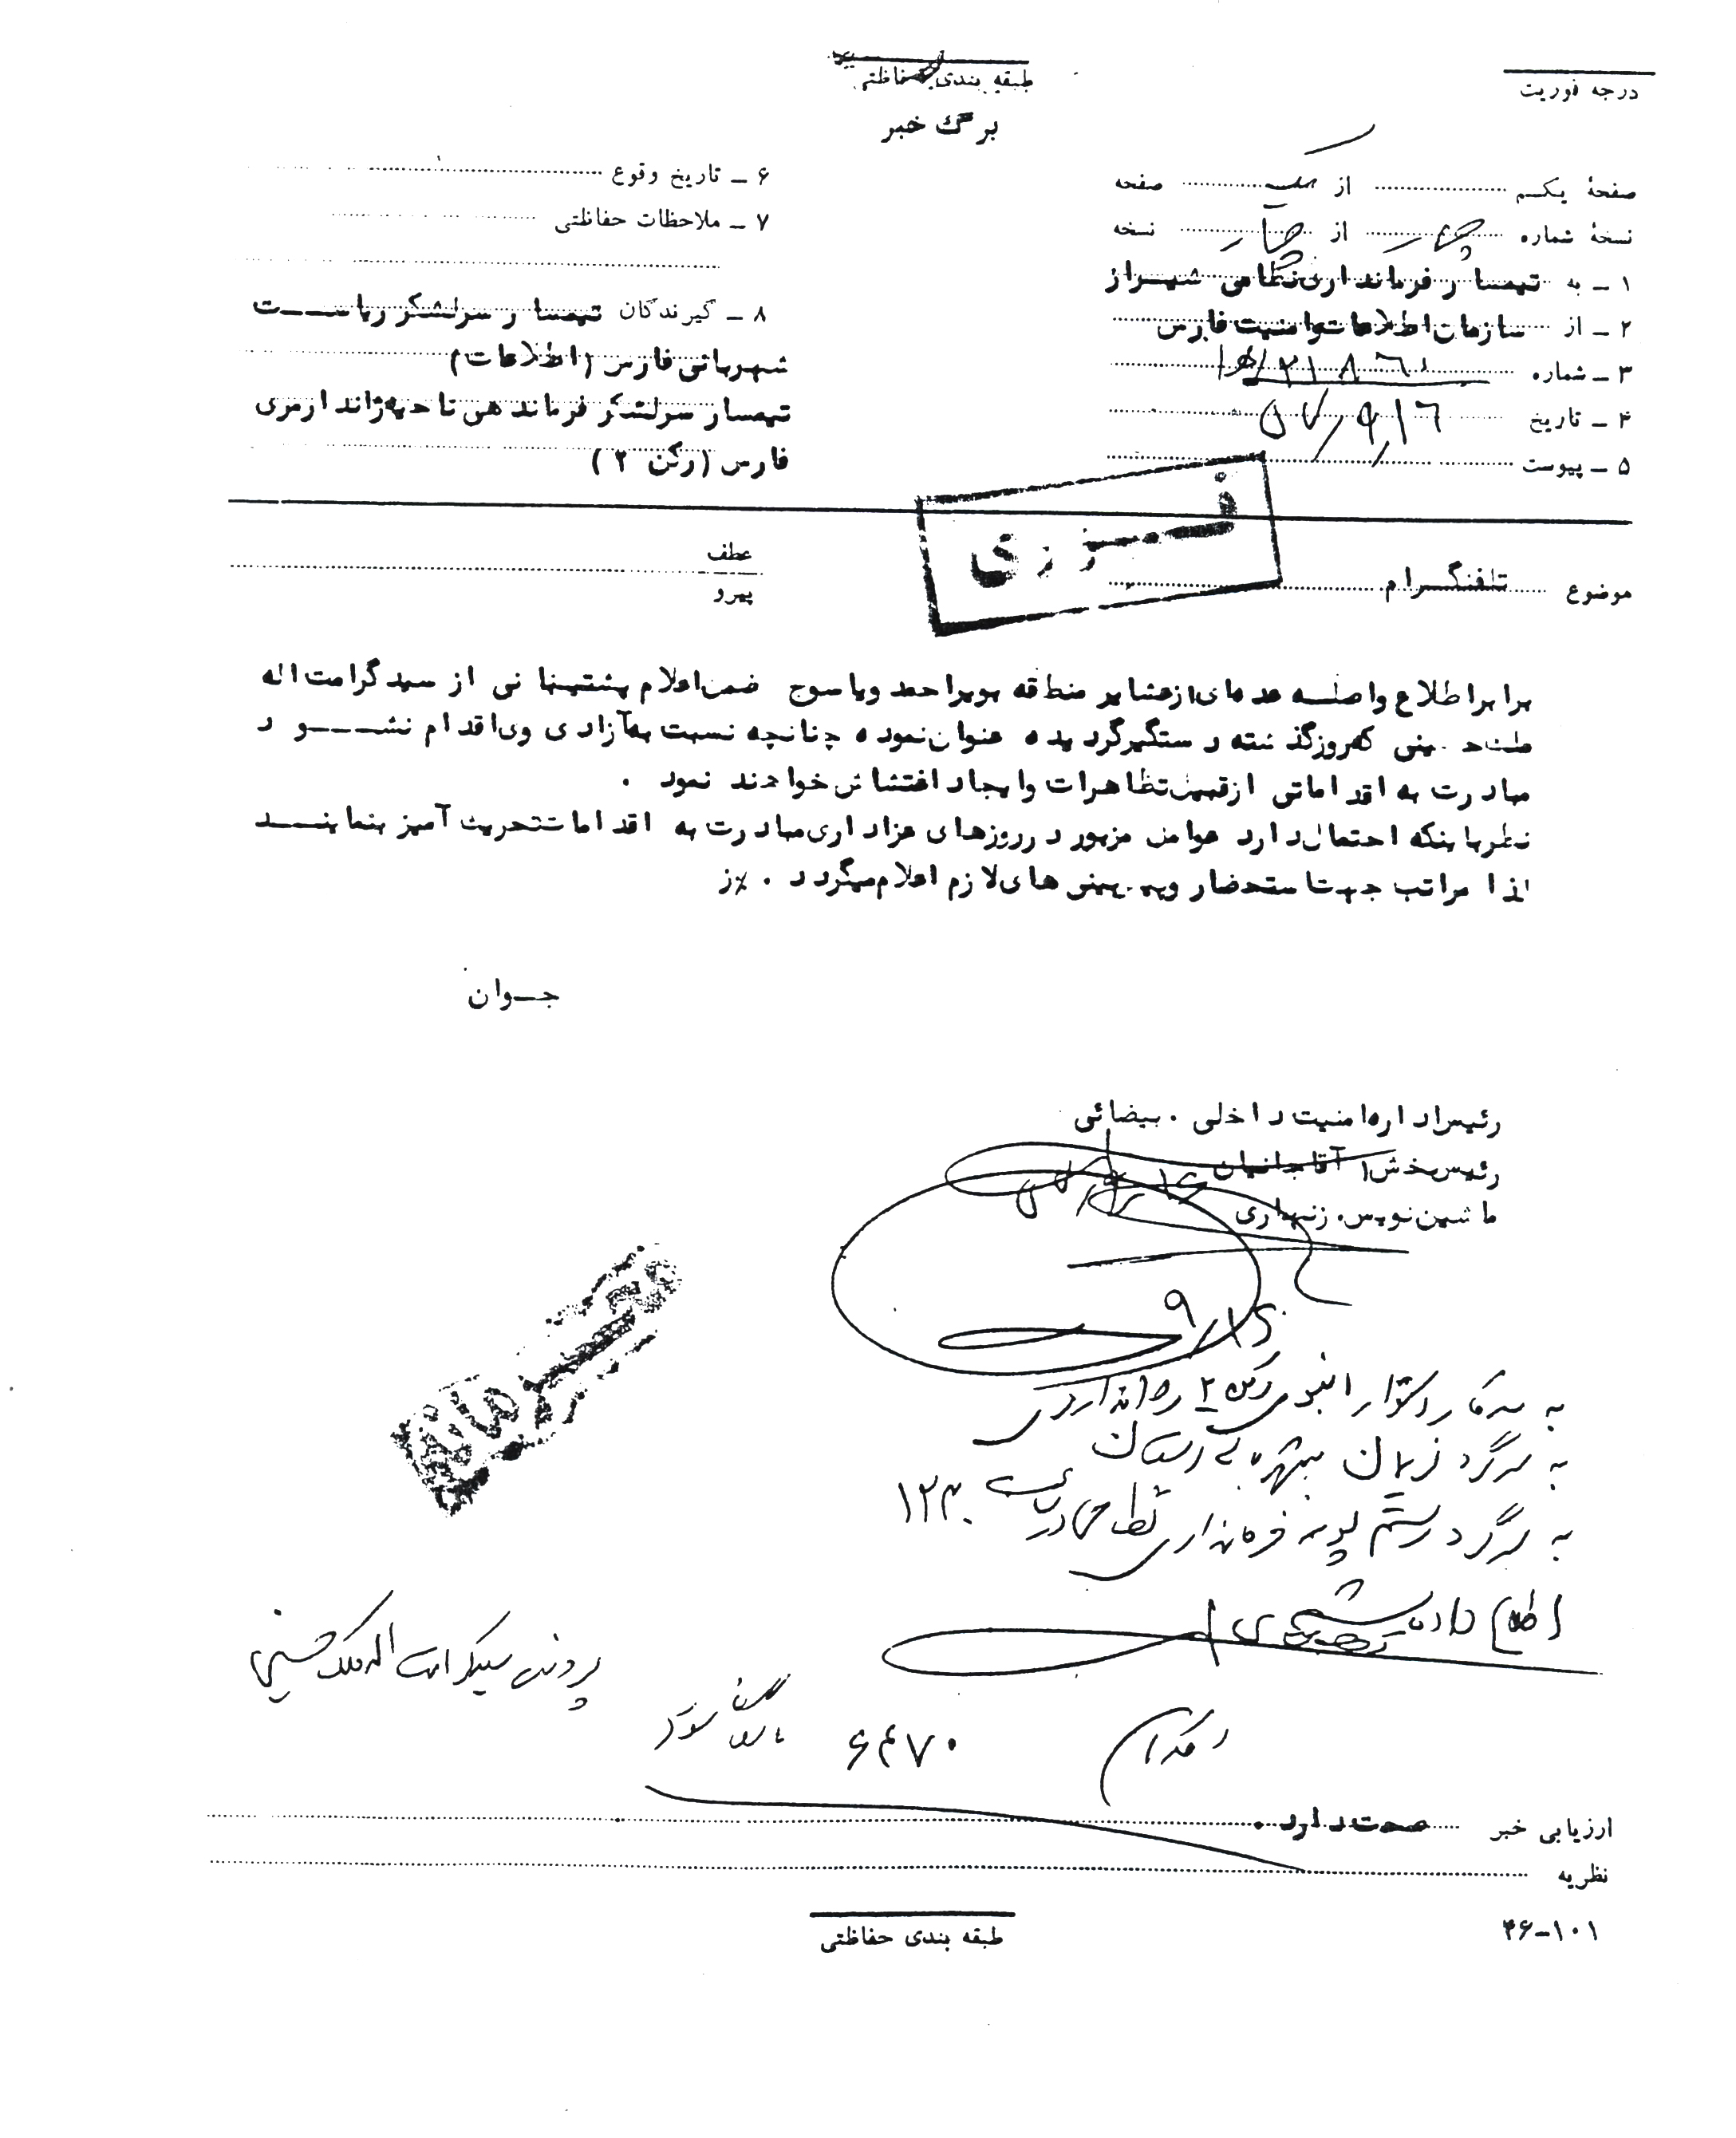 طبقه بندی حفاظتی
درجه فوریت
برگ خبر
صفحهٔ یکم از یک صفحه
نسخهٔ شماره چهار از چهار نسخه
۱ ـ به تیمسار فرمانداری نظامی شیراز
۲ ـ از سازمان اطلاعات و امنیت فارس
۳ ـ شماره ۲۱۸۶۱/ه‍ ۱
۴ ـ تاریخ ۵۷/۹/۱۶
۵ ـ پیوست
۶ ـ تاریخ وقوع
۷ ـ ملاحظات حفاظتی
۸ ـ گیرندگان تیمسار سرلشکر ریاست
شهربانی فارس (اطلاعات)
تیمسار سرلشکر فرماندهی ناحیه ژاندارمری
فارس (رکن ۲)
فـــوری
عطف
موضوع تلفنگرام
پیرو
برابر اطلاع واصله عده‌ای از عشایر منطقه بویراحمد و یاسوج ضمن اعلام پشتیبانی از سید کرامت اله
ملک حسینی که روز گذشته دستگیر گردیده عنوان نموده چنانچه نسبت به آزادی وی اقدام نشود
مبادرت به اقداماتی از قبیل تظاهرات و ایجاد اغتشاش خواهند نمود .
نظر باینکه احتمال دارد عوامل مزبور در روزهای عزاداری مبادرت به اقدامات تحریک آمیز بنمایند
لذا مراتب جهت استحضار و پیش بینی های لازم اعلام میگردد . /ز
جوان
رئیس اداره امنیت داخلی . بیضائی
رئیس بخش ۱ آقاجانیان
ماشین نویس . زنهاری
۹/۱۶
محرمانه
به سرکار استوار رکن ۲ ژاندارمری
به سرگرد نریمان شهربانی استان
به سرگرد رستم پور فرمانداری نظامی در ساعت ۱۲۳۰
اطلاع داده شد
پرونده سید کرامت اله ملک حسینی
بایگانی شود
۶۴۷۰
ارزیابی خبر صحت دارد .
نظریه
طبقه بندی حفاظتی
۴۶-۱۰۱